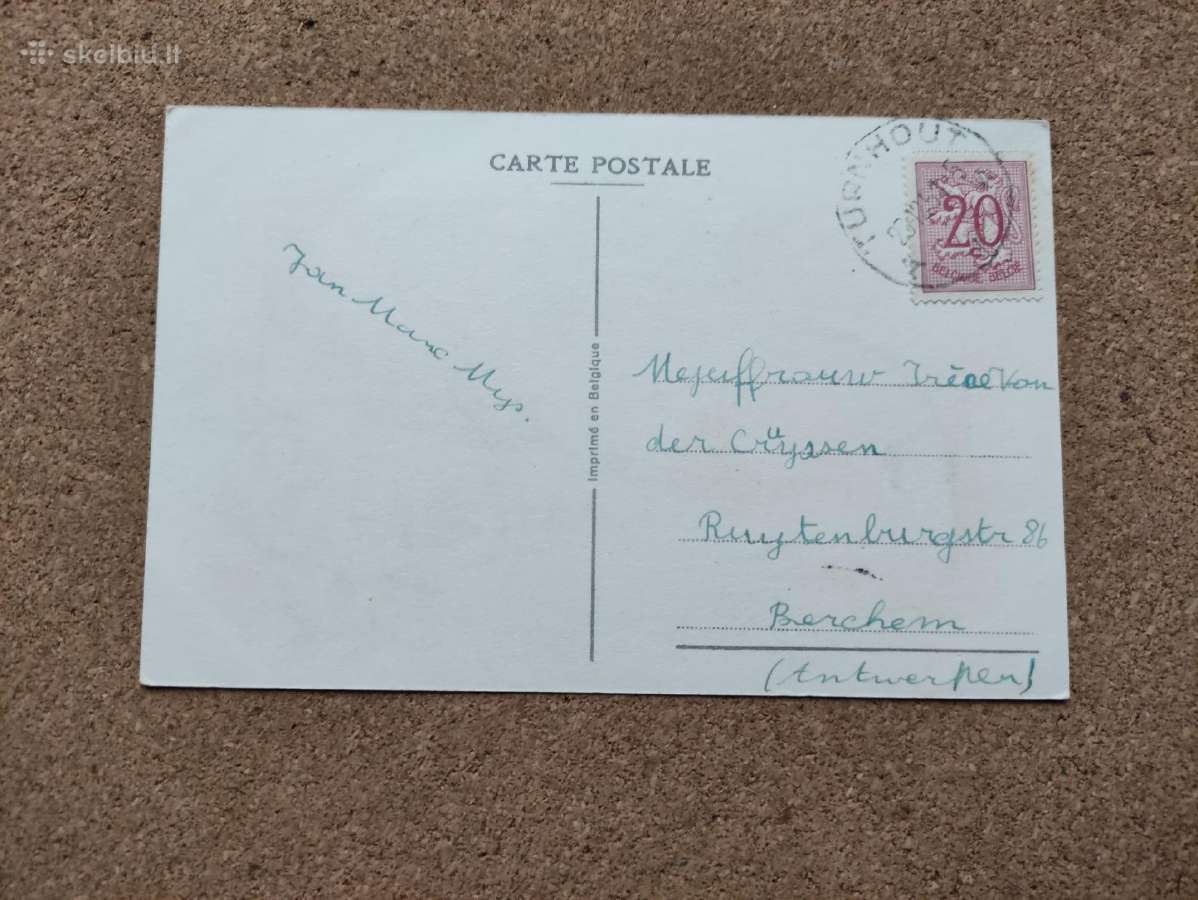 skelbiu.lt
CARTE POSTALE
TURNHOUT
20
BELGIQUE-BELGIE
Jan Marc Mys.
Imprimé en Belgique
Mejuffrouw Van
der Crüyssen
Ruytenburgstr 86
Berchem
(Antwerpen)